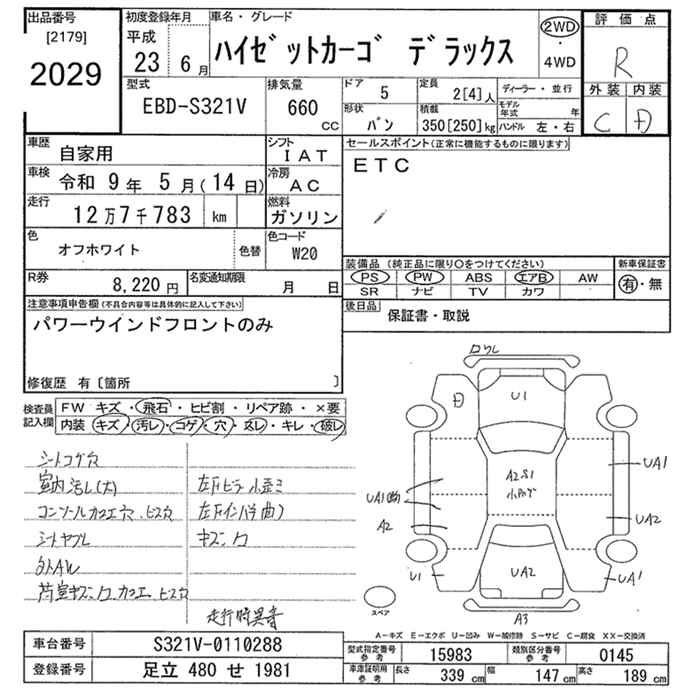 出品番号
[2179]
2029
初度登録年月
平成
23 6月
車名・グレード
ハイゼットカーゴ デラックス
2WD
・
4WD
評価点
R
外装 内装
C D
型式
EBD-S321V
排気量
660
CC
ドア 5
形状 バン
定員 2[4]人
積載 350[250]kg
ディーラー・並行
モデル年式 年
ハンドル 左・右
車歴 自家用
シフト IAT
車検 令和 9年 5月(14日)
冷房 AC
走行 12万7千783 km
燃料 ガソリン
色 オフホワイト 色替
色コード W20
R券 8,220円
名変通知期限 月 日
セールスポイント(正常に機能するものに限ります)
ETC
装備品(純正品に限り○をつけてください)
PS PW ABS エアB AW
SR ナビ TV カワ
新車保証書
有・無
後日品 保証書・取説
注意事項申告欄(不具合内容等は具体的に記入して下さい)
パワーウインドフロントのみ
修復歴 有〔箇所 〕
検査員記入欄
FW キズ・飛石・ヒビ割・リペア跡・×要
内装 キズ・汚レ・コゲ・穴・スレ・キレ・破レ
シートコゲ穴
室内汚れ(大)
左下ヒラ小歪ミ
シートヤブレ
キズ
外AW
走行時異音
D
U1
A2S1
UA1
UA2
A2
U1
UA2
UA1
A3
スペア
A−キズ E−エクボ U−凹み W−補修跡 S−サビ C−腐食 XX−交換済
車台番号 S321V-0110288
登録番号 足立 480 せ 1981
型式指定番号参考 15983
類別区分番号参考 0145
車庫証明用参考 長さ 339cm 幅 147cm 高さ 189cm